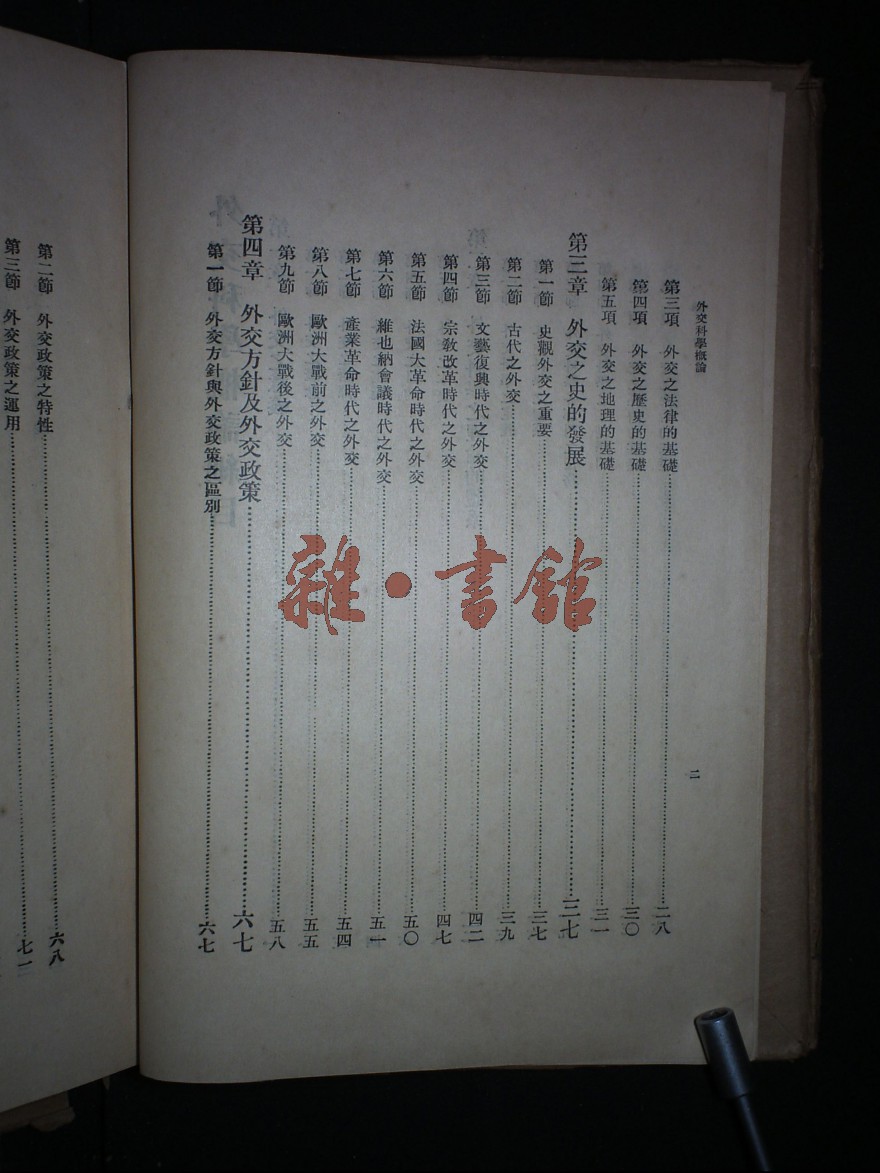 外交科學概論
二
第三項 外交之法律的基礎……二八
第四項 外交之歷史的基礎……三〇
第五項 外交之地理的基礎……三一
第三章 外交之史的發展……三七
第一節 史觀外交之重要……三七
第二節 古代之外交……三九
第三節 文藝復興時代之外交……四二
第四節 宗敎改革時代之外交……四七
第五節 法國大革命時代之外交……五〇
第六節 維也納會議時代之外交……五一
第七節 產業革命時代之外交……五四
第八節 歐洲大戰前之外交……五五
第九節 歐洲大戰後之外交……五八
第四章 外交方針及外交政策……六七
第一節 外交方針與外交政策之區別……六七
第二節 外交政策之特性……六八
第三節 外交政策之運用……七一
雜·書館